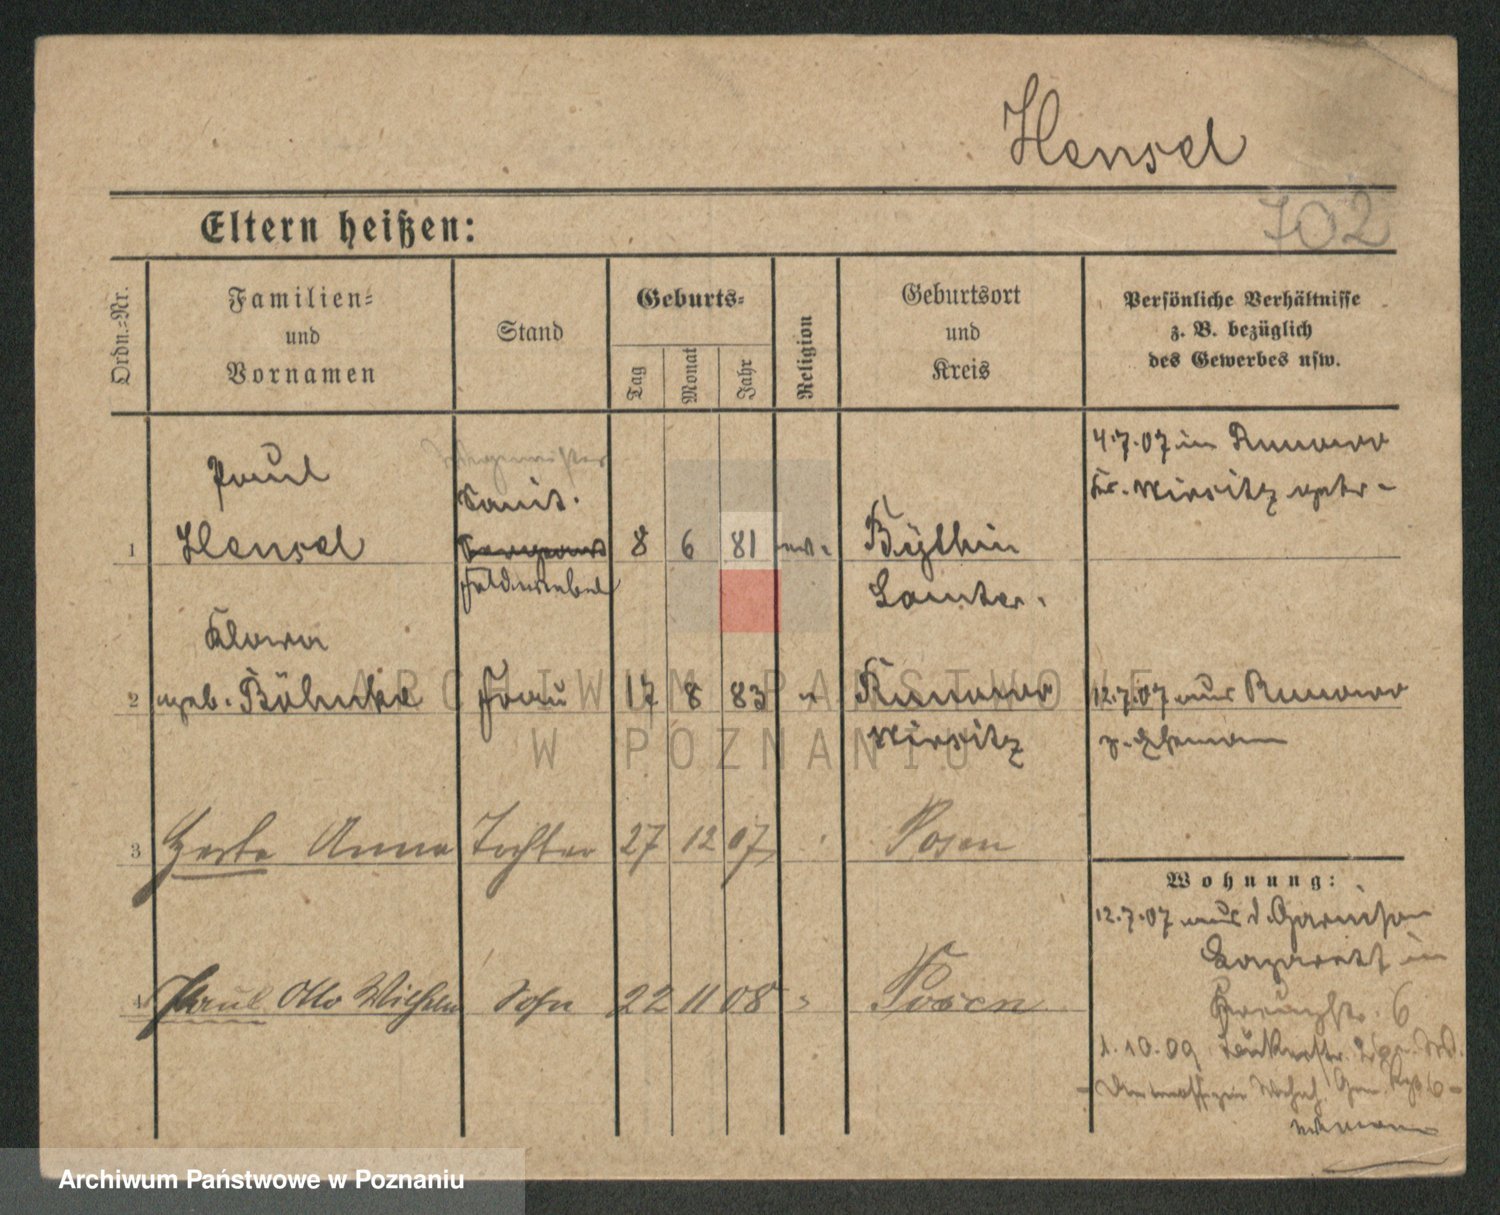 Hensel
702
Eltern heißen:
Ordn.-Nr.
Familien-
und
Vornamen
Stand
Geburts-
Tag
Monat
Jahr
Religion
Geburtsort
und
Kreis
Persönliche Verhältnisse
z. B. bezüglich
des Gewerbes usw.
Paul
Sanit.
4.7.07 in Runowo
Kr. Wirsitz getr-
1 Hensel Sergeant 8 6 81 ev. Bythin
Feldwebel
Samter.
Klara
2 geb. Böhnke Frau 17 8 83 " Runowo
12.7.07 aus Runowo
Wirsitz
z. Ehemann
3 Herta Anna Tochter 27 12 07 Posen
Wohnung:
12.7.07 aus d. Garnison
Lazarett in
4 Paul Otto Wilhelm Sohn 22 11 08 " Posen
6
1.10.09
ARCHIWUM PAŃSTWOWE
W POZNANIU
Archiwum Państwowe w Poznaniu